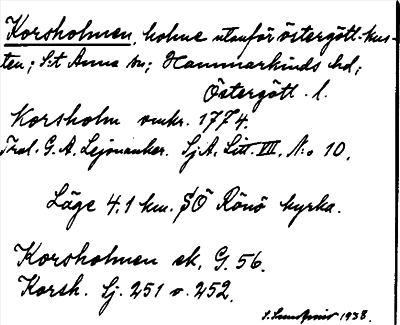 Korsholmen, holme utanför östergött-kus-
ten; S:t Anna sn; Hammarkinds hd;
Östergött. l.
Korsholm omkr. 1774.
Trol. G. A. Lejonanker. SjA. Litt. III, N:o 10.
Läge 4.1 km. SÖ Rönö kyrka.
Korsholmen ek. G. 56.
Korsh. Lj. 251 o. 252.
1938.